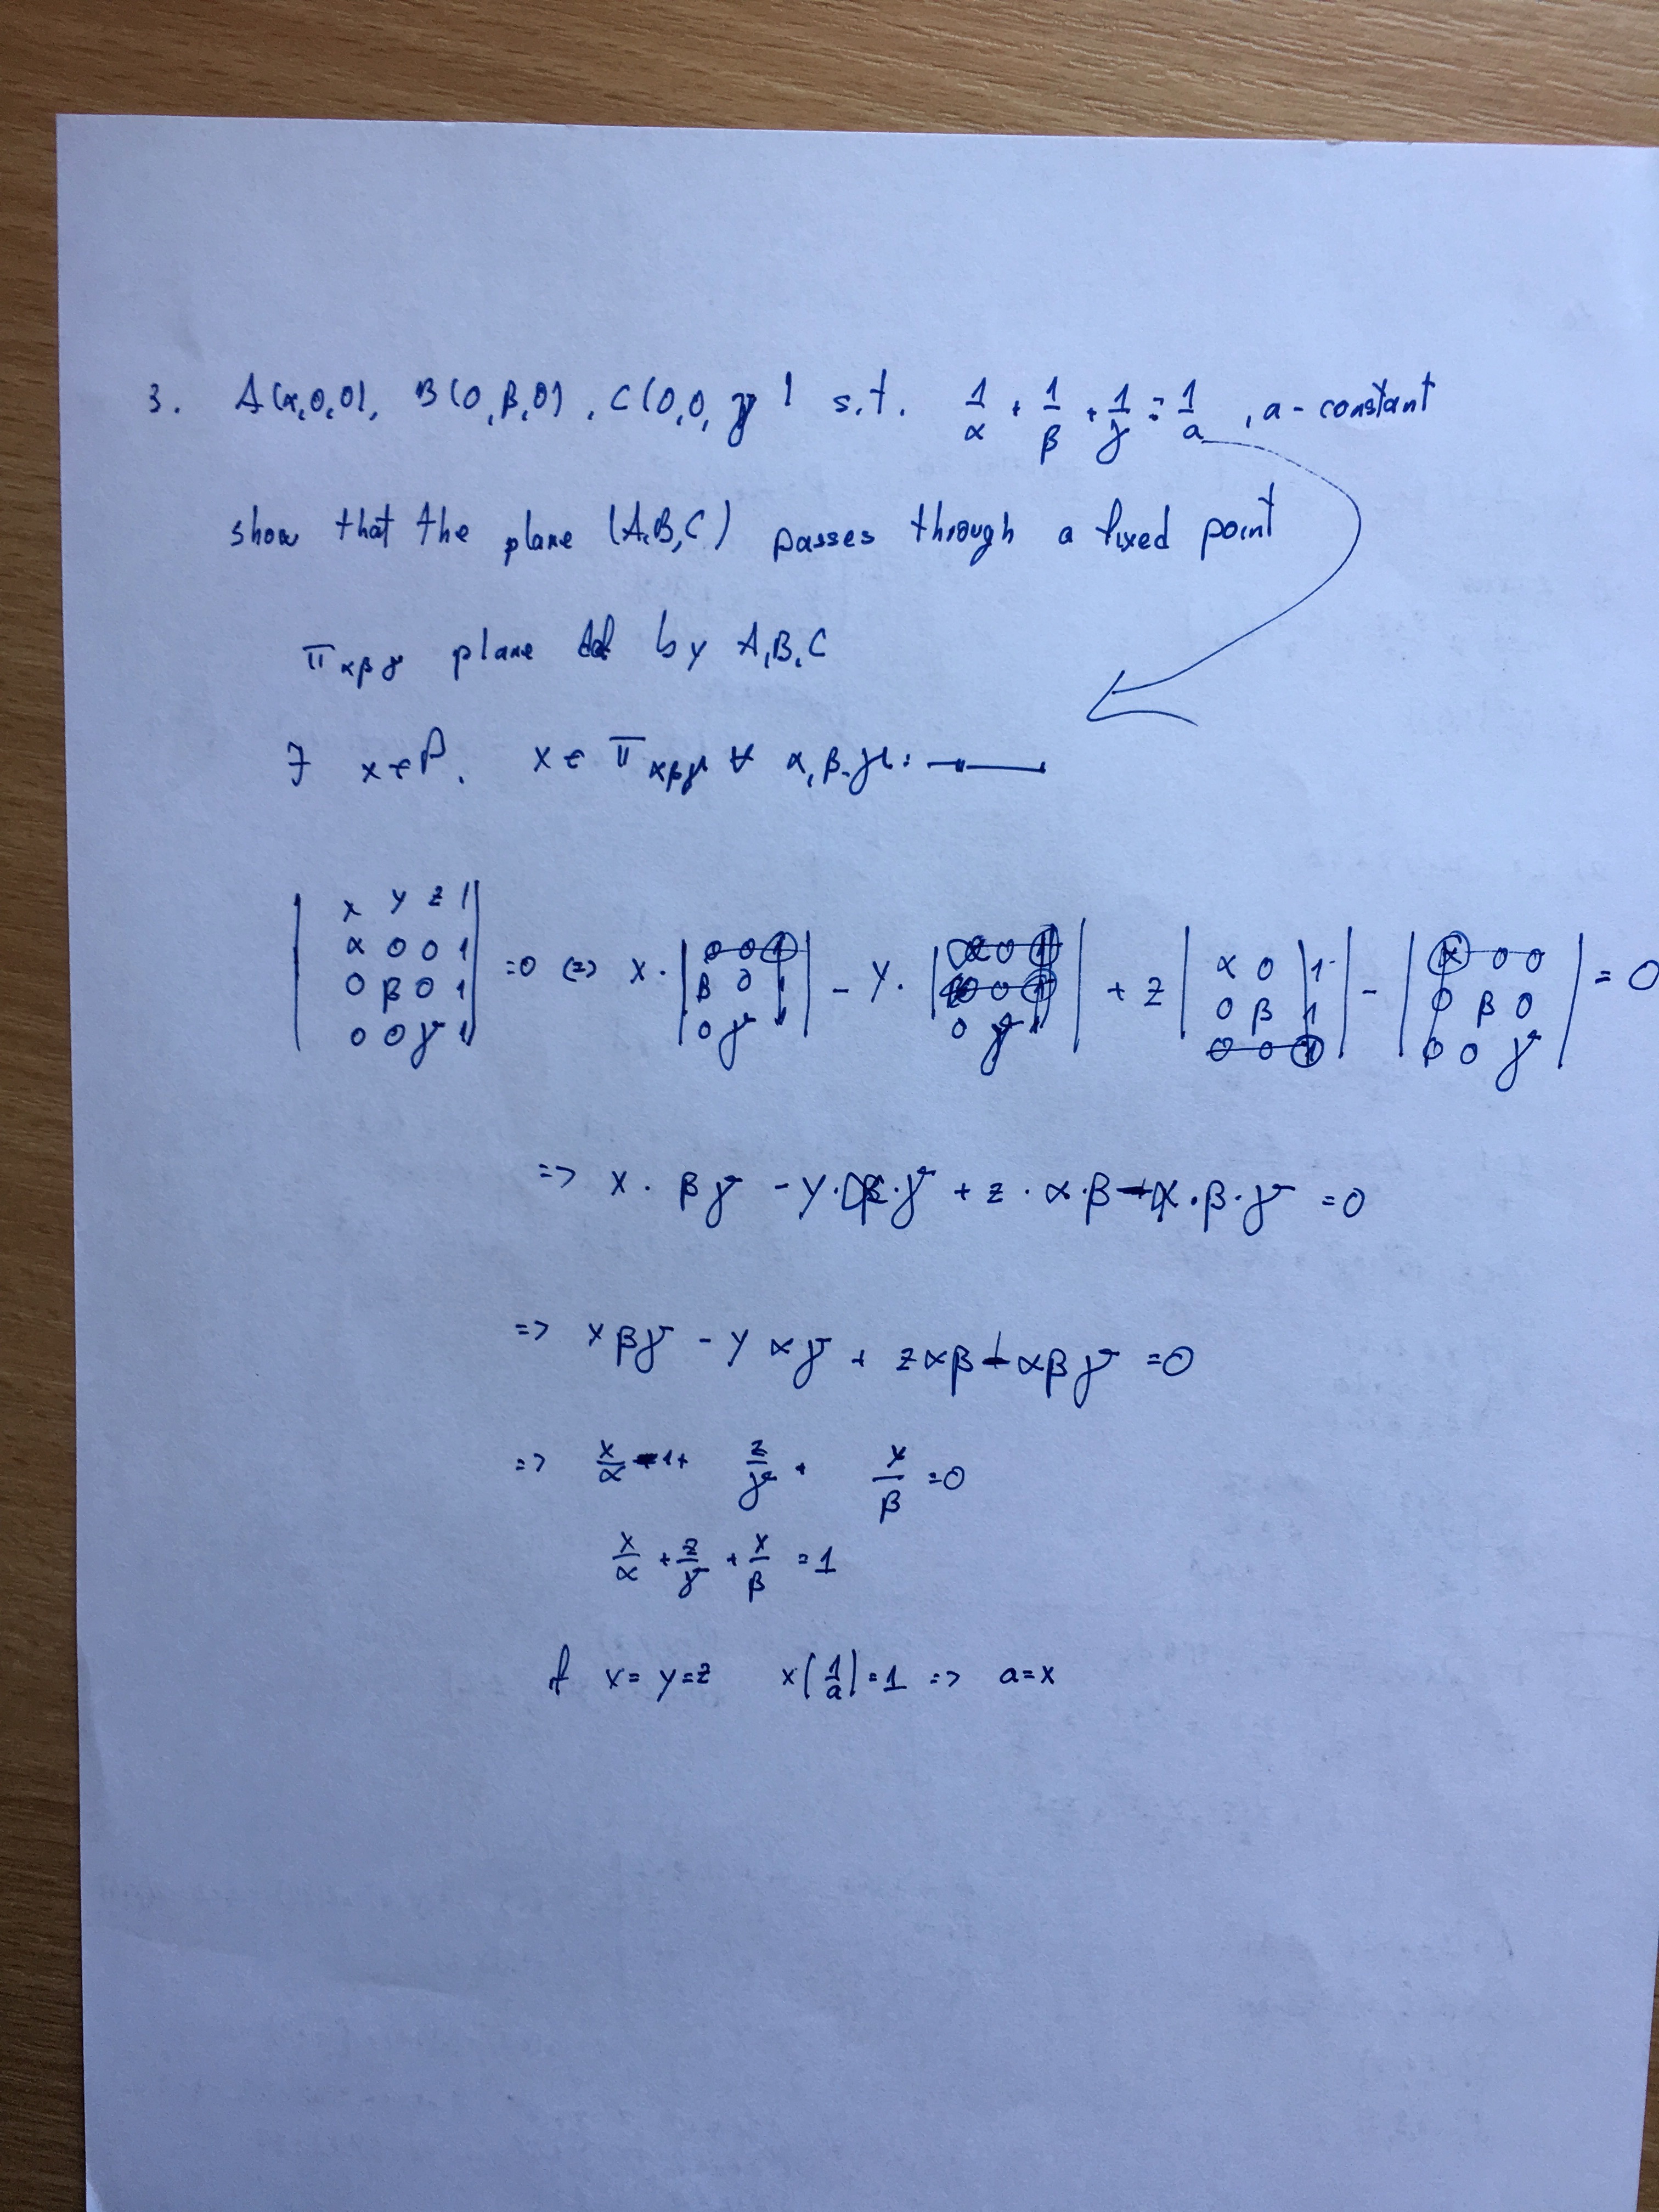 3. A(α,0,0), B(0,β,0), C(0,0,γ) s.t. 1/α + 1/β + 1/γ = 1/a, a - constant
show that the plane (A,B,C) passes through a fixed point
π αβγ plane by A,B,C
∃ x∈P. x ∈ π αβγ ∀ α,β,γ: —"—
| x y z 1 |
| α 0 0 1 |
| 0 β 0 1 |
| 0 0 γ 1 | =0 (=) x · | 0 0 1 | β 0 1 | 0 γ 1 | - y · | α 0 1 | 0 0 1 | 0 γ 1 | + z | α 0 1 | 0 β 1 | 0 0 1 | - | α 0 0 | 0 β 0 | 0 0 γ | = 0
=> x · βγ - y · α · γ + z · α · β - α · β · γ = 0
=> x βγ - y αγ + zαβ + αβγ = 0
=> x/α - 1 + z/γ + y/β = 0
x/α + z/γ + y/β = 1
if x = y = z x(1/a) = 1 => a = x